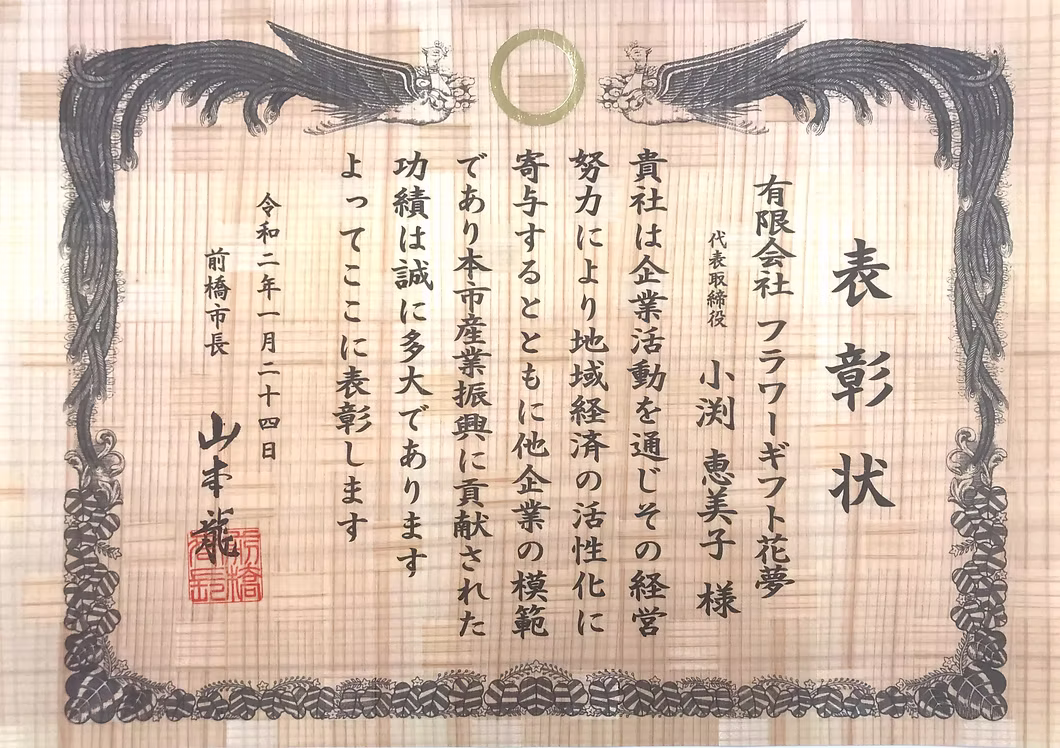 表彰状
有限会社 フラワーギフト花夢
代表取締役 小渕 恵美子 様
貴社は企業活動を通じその経営
努力により地域経済の活性化に
寄与するとともに他企業の模範
であり本市産業振興に貢献された
功績は誠に多大であります
よってここに表彰します
令和二年一月二十四日
前橋市長 山本龍